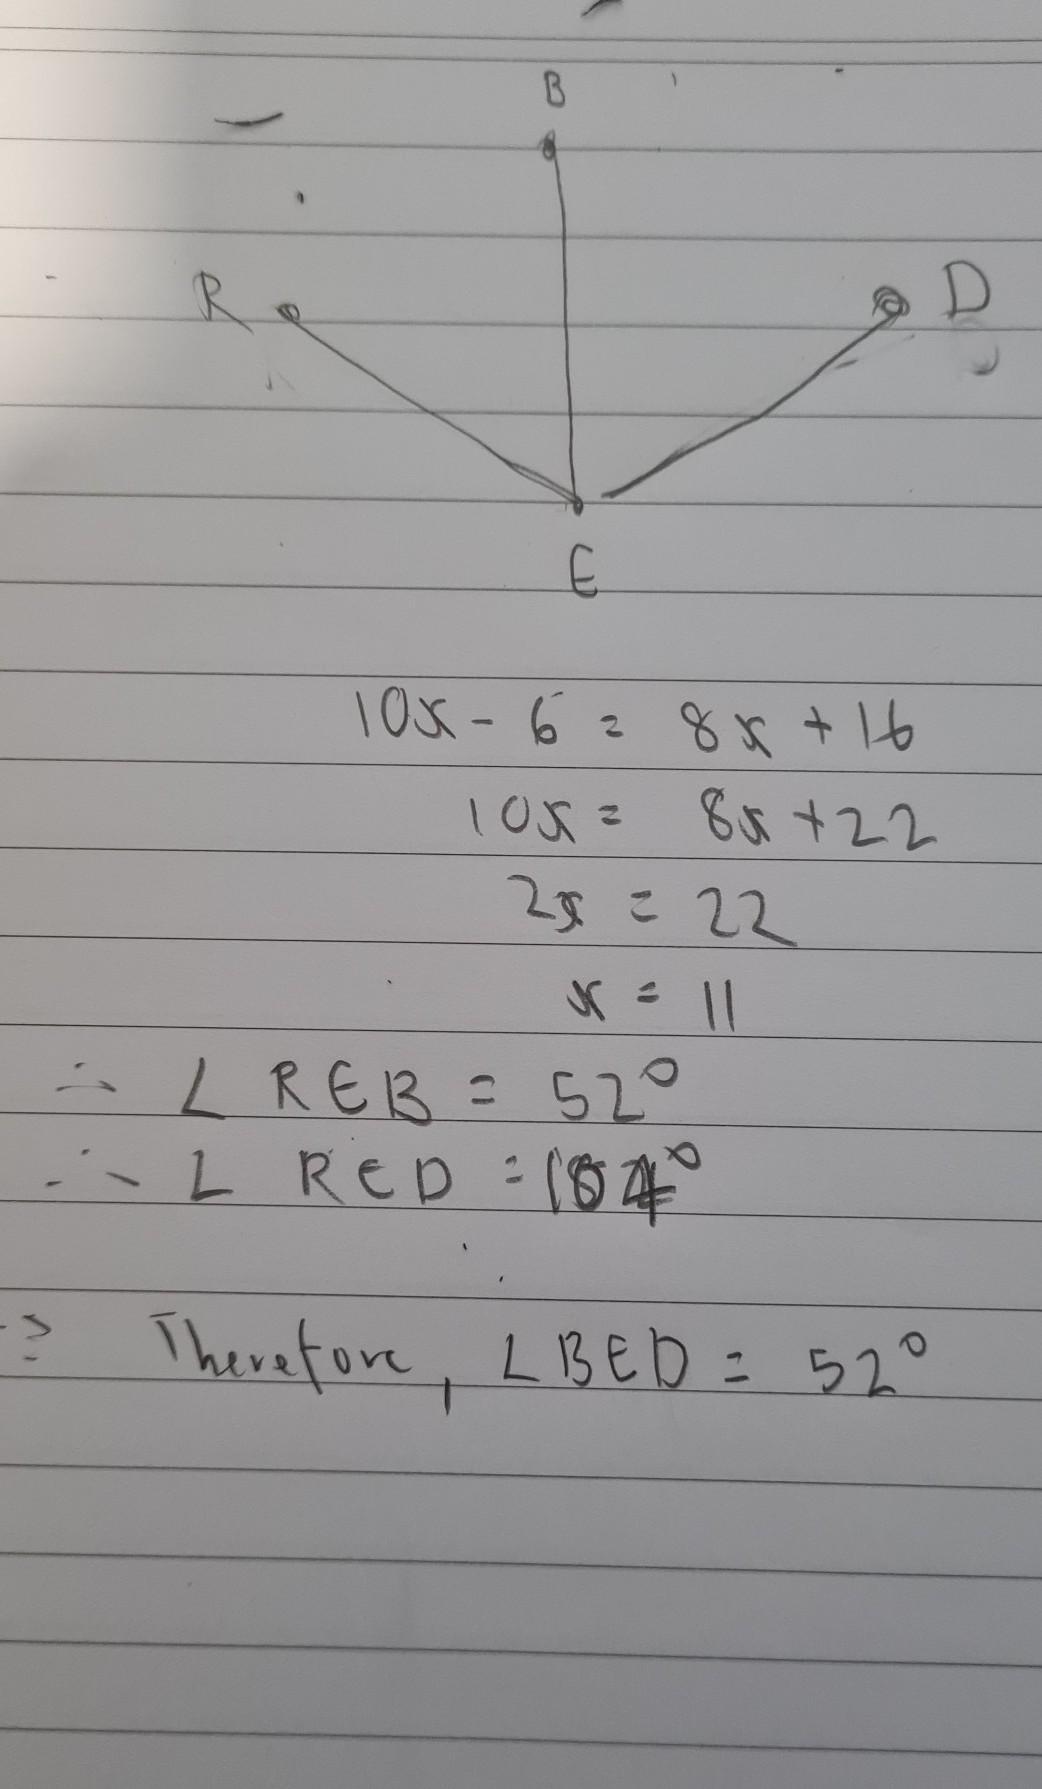 B
R
D
E
10x - 6 = 8x + 16
10x = 8x + 22
2x = 22
x = 11
∴ ∠ REB = 52°
∴ ∠ RED = 104°
⇒ Therefore, ∠BED = 52°